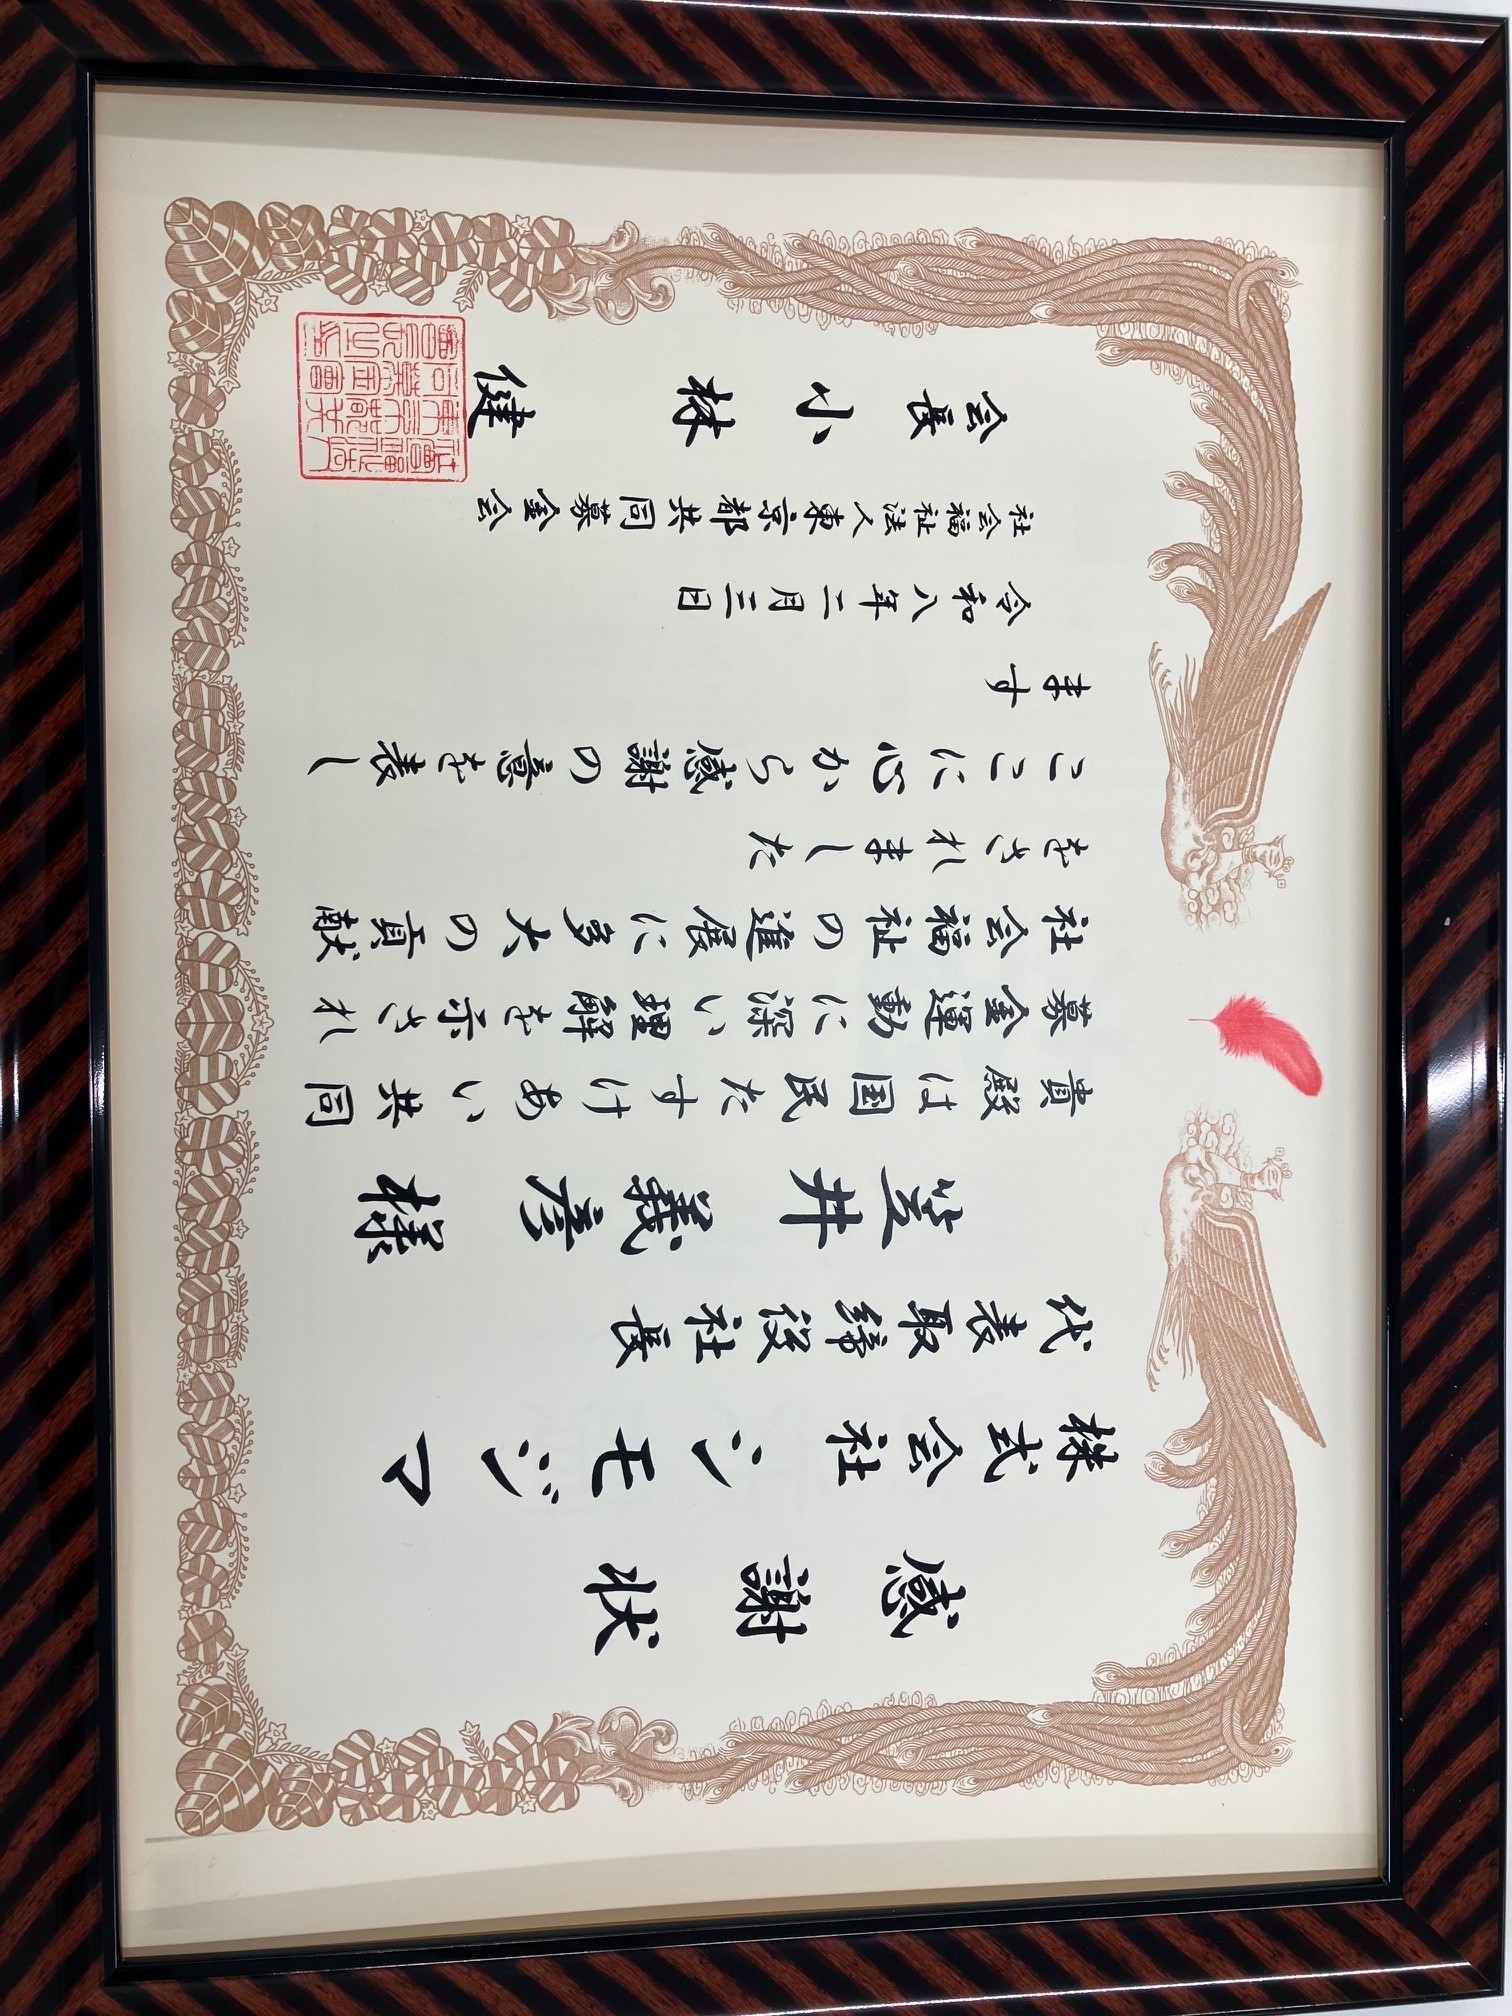 感謝状
株式会社シモジマ
代表取締役社長
笠井義彦様
貴殿は国民たすけあい共同
募金運動に深い理解を示され
社会福祉の進展に多大の貢献
をされました
ここに心から感謝の意を表し
ます
令和八年二月三日
社会福祉法人東京都共同募金会
会長小林健